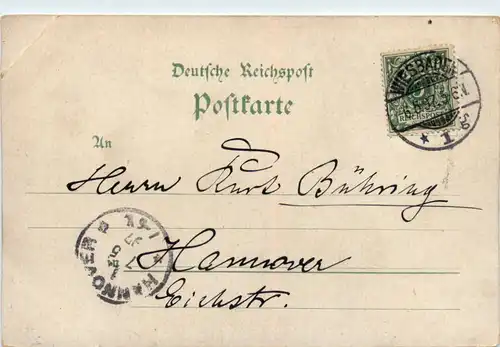 Deutsche Reichspost
Postkarte
WIESBADEN
REICHSPOST
* 1
An
Herrn Kurt Bühring
Hannover
HANNOVER
Eichstr.